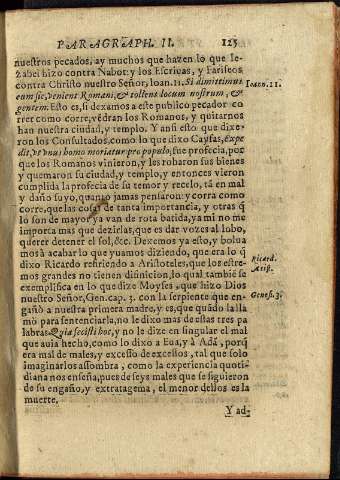 PARAGRAPH. II. 125
nuestros pecados, ay muchos que hazen lo que Ie-
zabel hizo contra Nabot: y los Escriuas, y Fariseos
contra Christo nuestro Señor, Ioan. 11. Si dimittimus
Ioan. 11.
eum sic, venient Romani, & tollent locum nostrum, &
gentem. Esto es, si dexamos a este publico pecador co
rrer como corre, vẽdran los Romanos, y quitarnos
han nuestra ciudad, y templo. Y ansi esto que dixe-
ron los Consultados, como lo que dixo Cayfas, expe
dit, vt vnus homo moriatur pro populo, fue profecia, por
que los Romanos vinieron, y les robaron sus bienes
y quemaron su ciudad, y templo, y entonces vieron
cumplida la profecia de su temor y recelo, tã en mal
y daño suyo, quanto jamas pensaron: y corra como
corre, que las cosas de tanta importancia, y otras q̃
lo son de mayor ya van de rota batida, ya mi no me
importa mas que dezirlas, que es dar vozes al lobo,
querer detener el sol, &c. Dexemos ya esto, y bolua
mos à acabar lo que yuamos diziendo, que era lo q̃
dixo Ricardo refiriendo a Aristoteles, que los estre-
Ricard.
Arist.
mos grandes no tienen difinicion, lo qual tambiẽ se
exemplifica en lo que dize Moyses, que hizo Dios
nuestro Señor, Gen. cap. 3. con la serpiente que en-
Genes. 3.
gañò a nuestra primera madre, y es, que quãdo la lla
mò para sentenciarla, no le dixo mas de estas tres pa
labras. Quia fecisti hoc, y no le dize en singular el mal
que auia hecho, como lo dixo a Eua, y à Adã, porq̃
era mal de males, y excesso de excessos, tal que solo
imaginarlos assombra, como la experiencia quoti-
diana nos enseña, pues de seys males que se siguieron
de su engaño, y extratagema, el menor dellos es la
muerte.
Y ad-